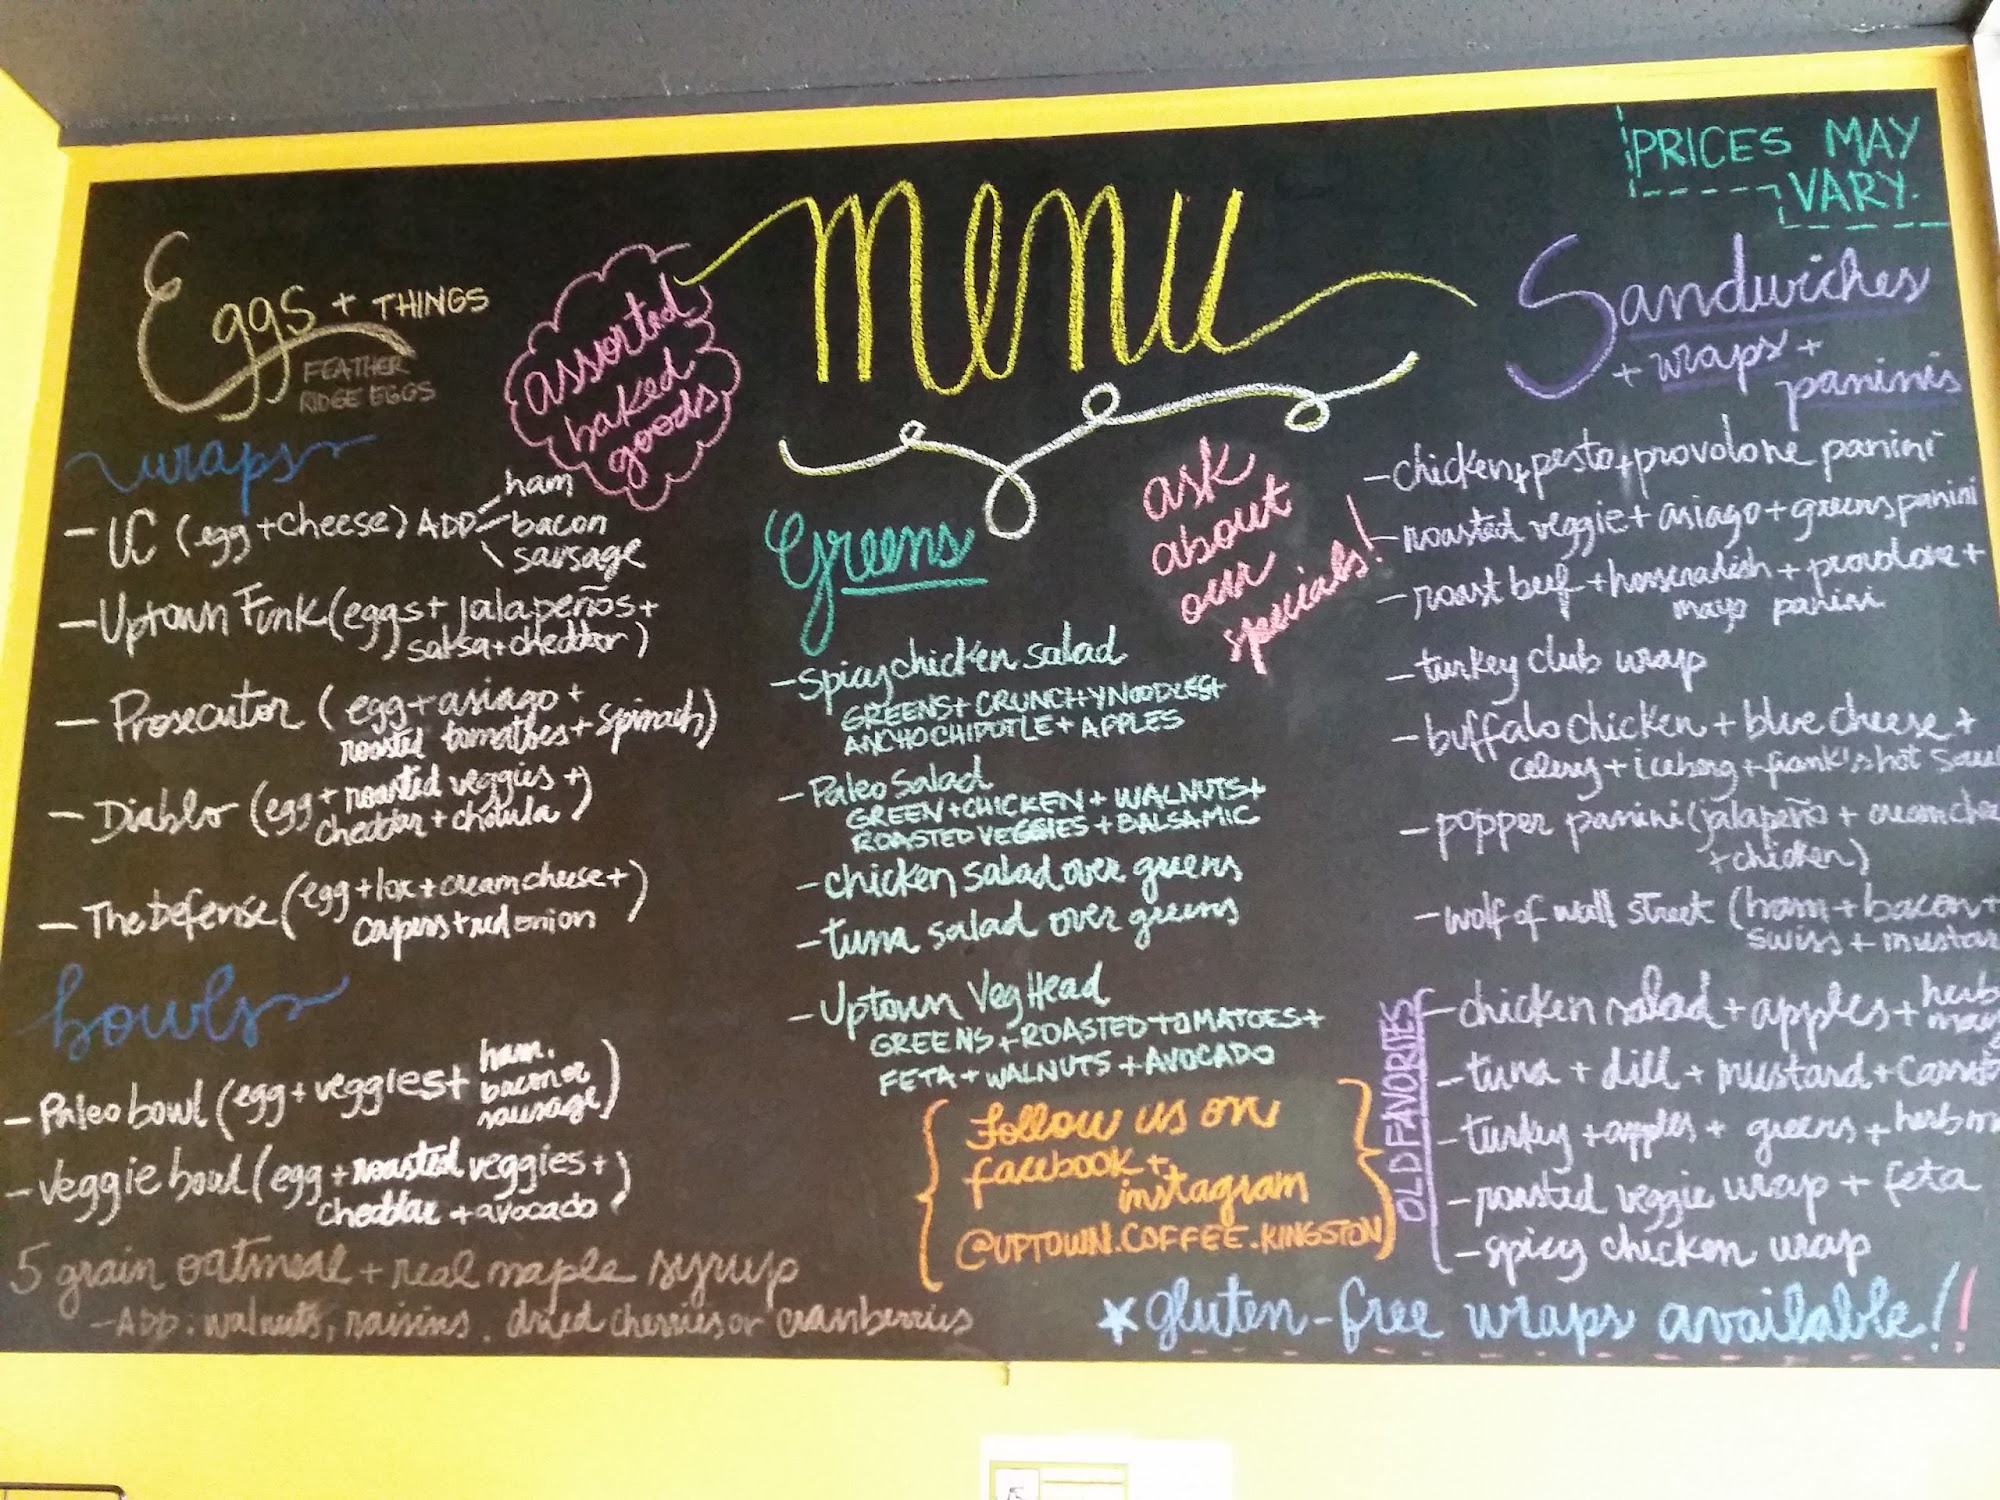 PRICES MAY
VARY.
menu
Eggs + THINGS
FEATHER
RIDGE EGGS
assorted
baked
goods
wraps
- UC (egg + cheese) ADD
ham
bacon
sausage
- Uptown Funk (eggs + jalapeños +
salsa + cheddar)
- Prosecutor (egg + asiago +
roasted tomatoes + spinach)
- Diablo (egg + roasted veggies +
cheddar + cholula)
- The Defense (egg + lox + cream cheese +
capers + red onion)
bowls
- Paleo bowl (egg + veggies + ham,
bacon or
sausage)
- Veggie bowl (egg + roasted veggies +
cheddar + avocado)
5 grain oatmeal + real maple syrup
- ADD: walnuts, raisins, dried cherries or cranberries
Greens
ask
about
our
specials!
- spicy chicken salad
GREENS + CRUNCHY NOODLES +
ANCHO CHIPOTLE + APPLES
- Paleo Salad
GREEN + CHICKEN + WALNUTS +
ROASTED VEGGIES + BALSAMIC
- chicken salad over greens
- tuna salad over greens
- Uptown Veg Head
GREENS + ROASTED TOMATOES +
FETA + WALNUTS + AVOCADO
Follow us on
facebook +
instagram
@UPTOWN.COFFEE.KINGSTON
Sandwiches
+ wraps +
paninis
- chicken + pesto + provolone panini
- roasted veggie + asiago + greens panini
- roast beef + horseradish + provolone +
mayo panini
- turkey club wrap
- buffalo chicken + blue cheese +
celery + iceberg + frank's hot
- popper panini (jalapeño + cream
+ chicken)
- wolf of wall street (ham + bacon +
swiss +
OLD FAVORITES
- chicken salad + apples + herb
- tuna + dill + mustard +
- turkey + apples + greens + herb
- roasted veggie wrap + feta
- spicy chicken wrap
* gluten-free wraps available!!